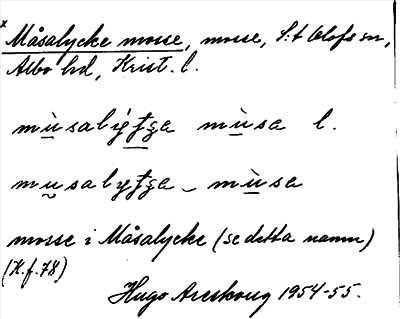 x Måsalycke mosse, mosse, S:t Olofs sn,
Albo hd, Krist. l.
mùsalýʈʂa mùsa l.
musalyʈʂa – mùsa
mosse i Måsalycke (se detta namn)
(K.f.78)
Hugo Areskoug 1954-55.